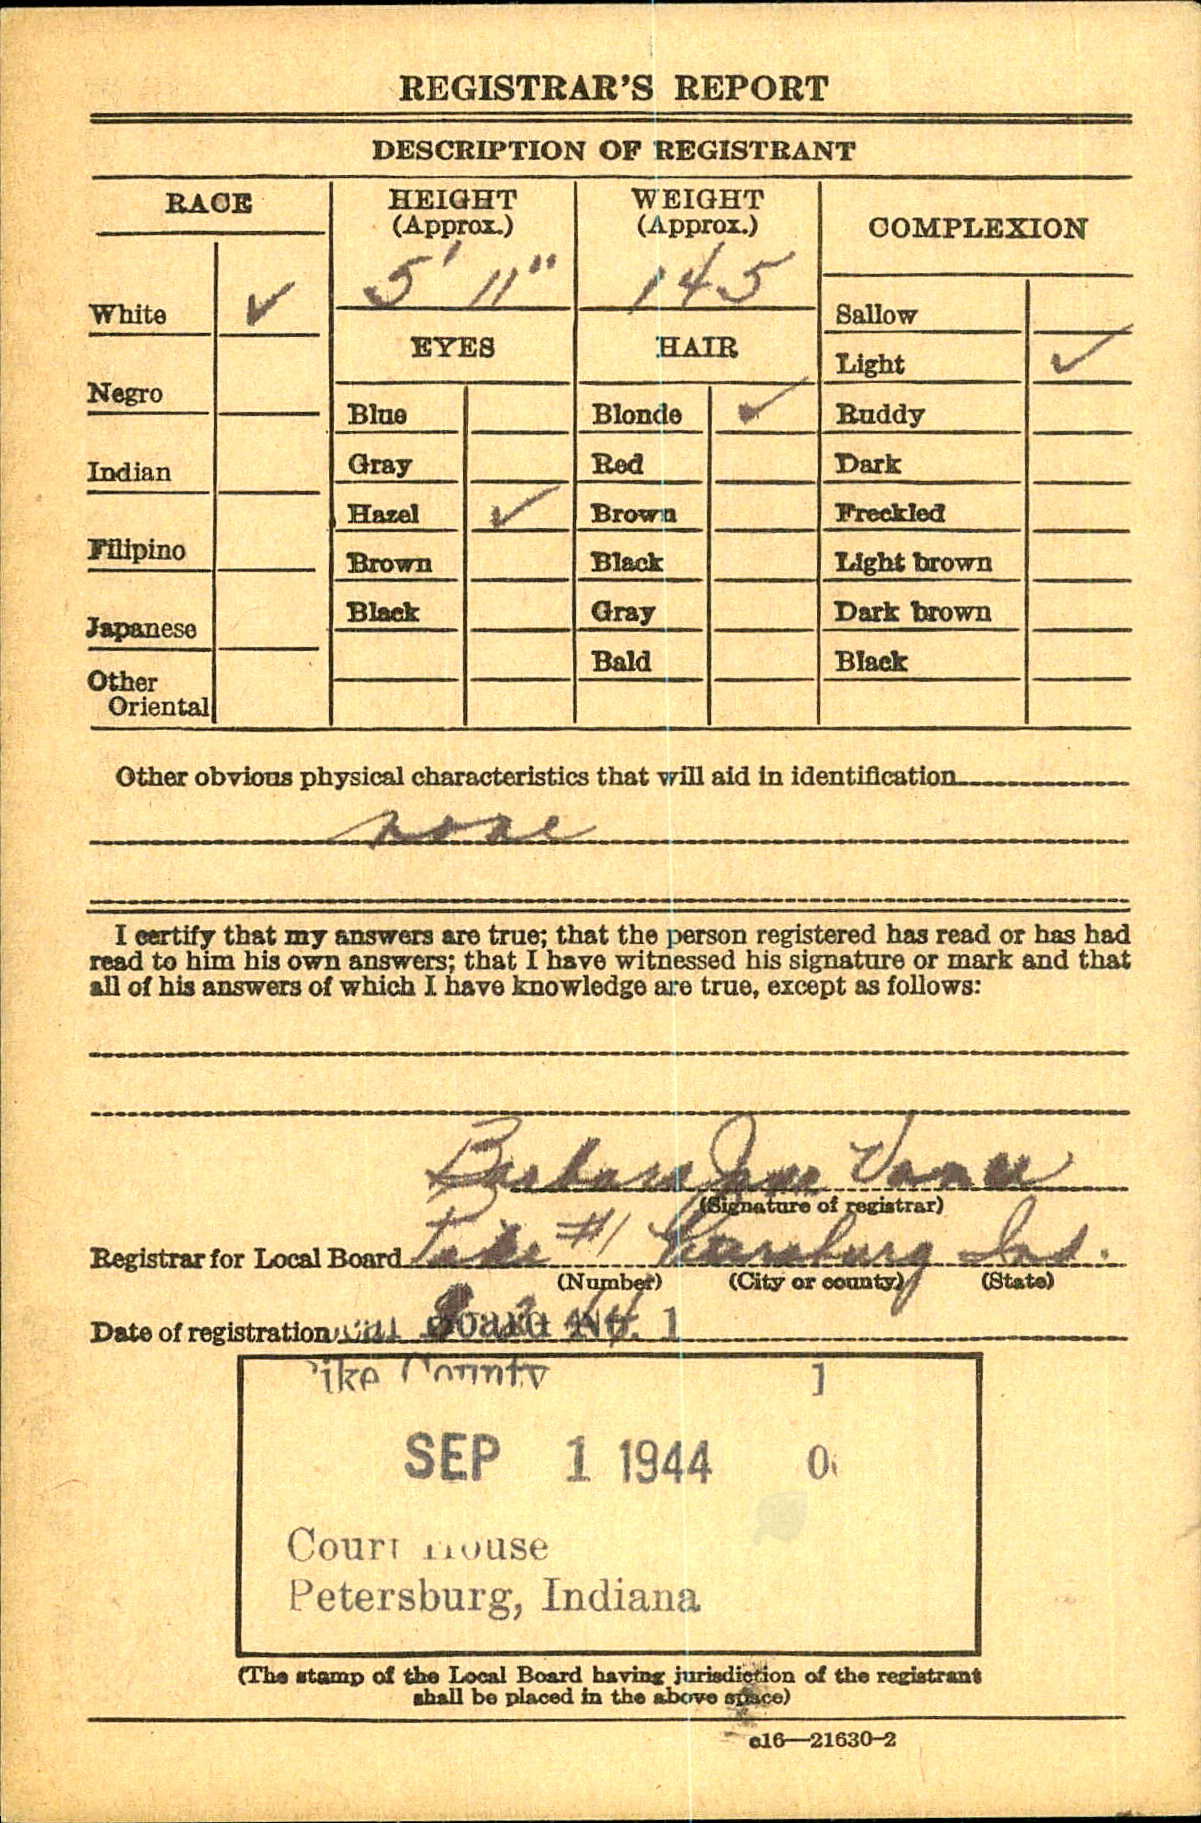 REGISTRAR'S REPORT
DESCRIPTION OF REGISTRANT
RACE
White ✓
Negro
Indian
Filipino
Japanese
Other
Oriental
HEIGHT
(Approx.)
5' 11"
EYES
Blue
Gray
Hazel ✓
Brown
Black
WEIGHT
(Approx.)
145
HAIR
Blonde ✓
Red
Brown
Black
Gray
Bald
COMPLEXION
Sallow
Light ✓
Ruddy
Dark
Freckled
Light brown
Dark brown
Black
Other obvious physical characteristics that will aid in identification
none
I certify that my answers are true; that the person registered has read or has had
read to him his own answers; that I have witnessed his signature or mark and that
all of his answers of which I have knowledge are true, except as follows:
Barbara Jane Vance
(Signature of registrar)
Registrar for Local Board Pike #1 Petersburg Ind.
(Number) (City or county) (State)
Date of registration Board No. 1
Pike County
SEP 1 1944
Court House
Petersburg, Indiana
(The stamp of the Local Board having jurisdiction of the registrant
shall be placed in the above space)
c16—21630-2